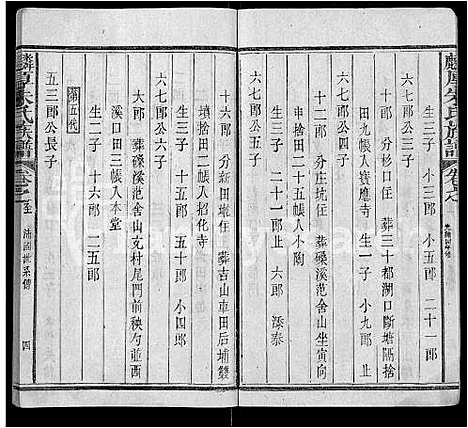 麟厚朱氏族譜
六七郎公子
生三子 小三郎 二十一郎
六郎 分杉口住 葬三十都湖口斷塘隔捨
田九帳入寶應寺 生一子 小九郎止
十二郎 分庄坑住 葬磜溪范舍山坐寅向
申捨田二十五帳入小陶
生三子 二十一郎止 六郎 添泰
六七郎公次子
十六郎 分新田墩住 葬吉山車田后埔雙
墳捨田二帳入招化寺
生三子 十郎 五十郎 小四郎
六七郎公三子
大郎 葬磜溪范舍山攴村尾門前秧勺並西
溪口田三帳入本堂
生二子 十六郎 二五郎
第五代
五三郎公長子
麟厚朱氏族譜
四